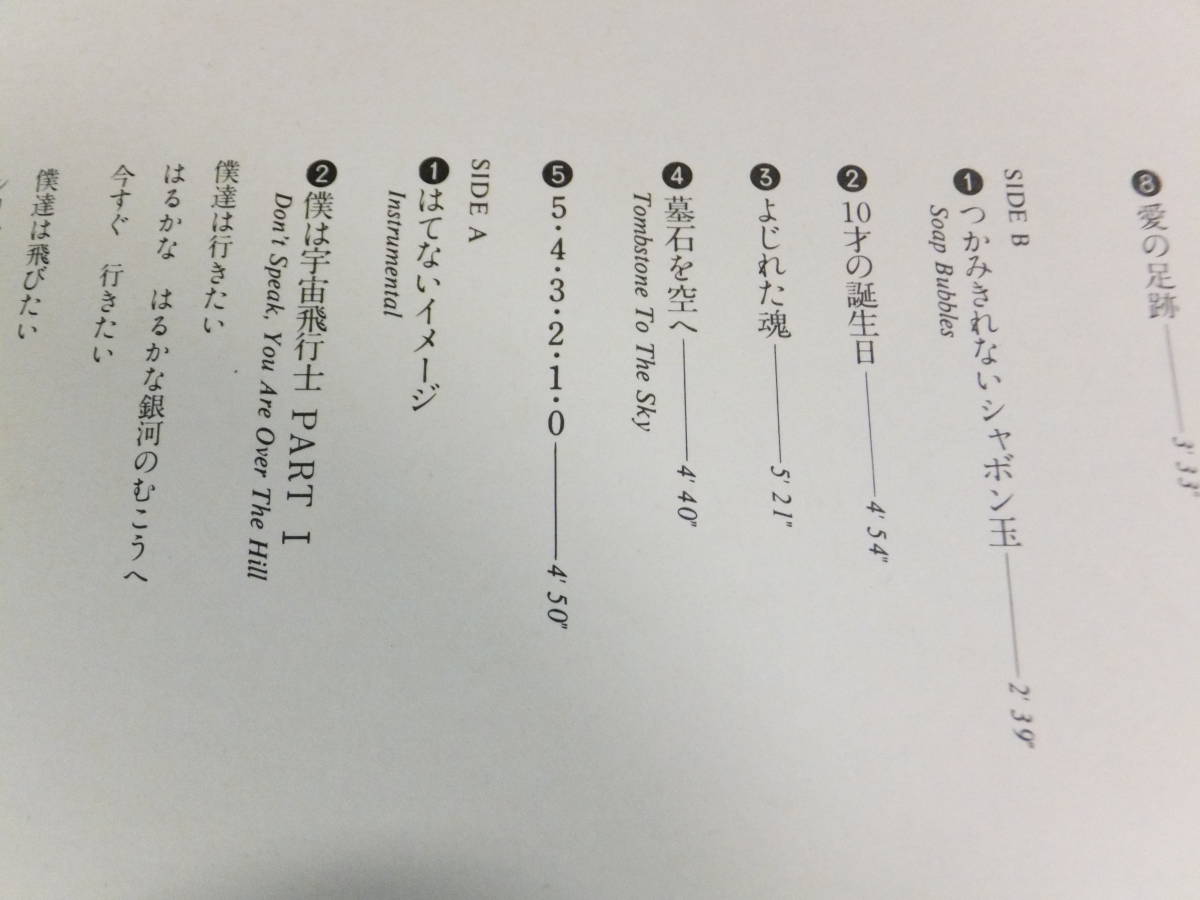 ❽ 愛の足跡 ——— 3′ 33″
SIDE B
❶ つかみきれないシャボン玉 ——— 2′ 39″
Soap Bubbles
❷ 10才の誕生日 ——— 4′ 54″
❸ よじれた魂 ——— 5′ 21″
❹ 墓石を空へ ——— 4′ 40″
Tombstone To The Sky
❺ 5・4・3・2・1・0 ——— 4′ 50″
SIDE A
❶ はてないイメージ
Instrumental
❷ 僕は宇宙飛行士 PART I
Don't Speak, You Are Over The Hill
僕達は行きたい
はるかな はるかな銀河のむこうへ
今すぐ 行きたい
僕達は飛びたい